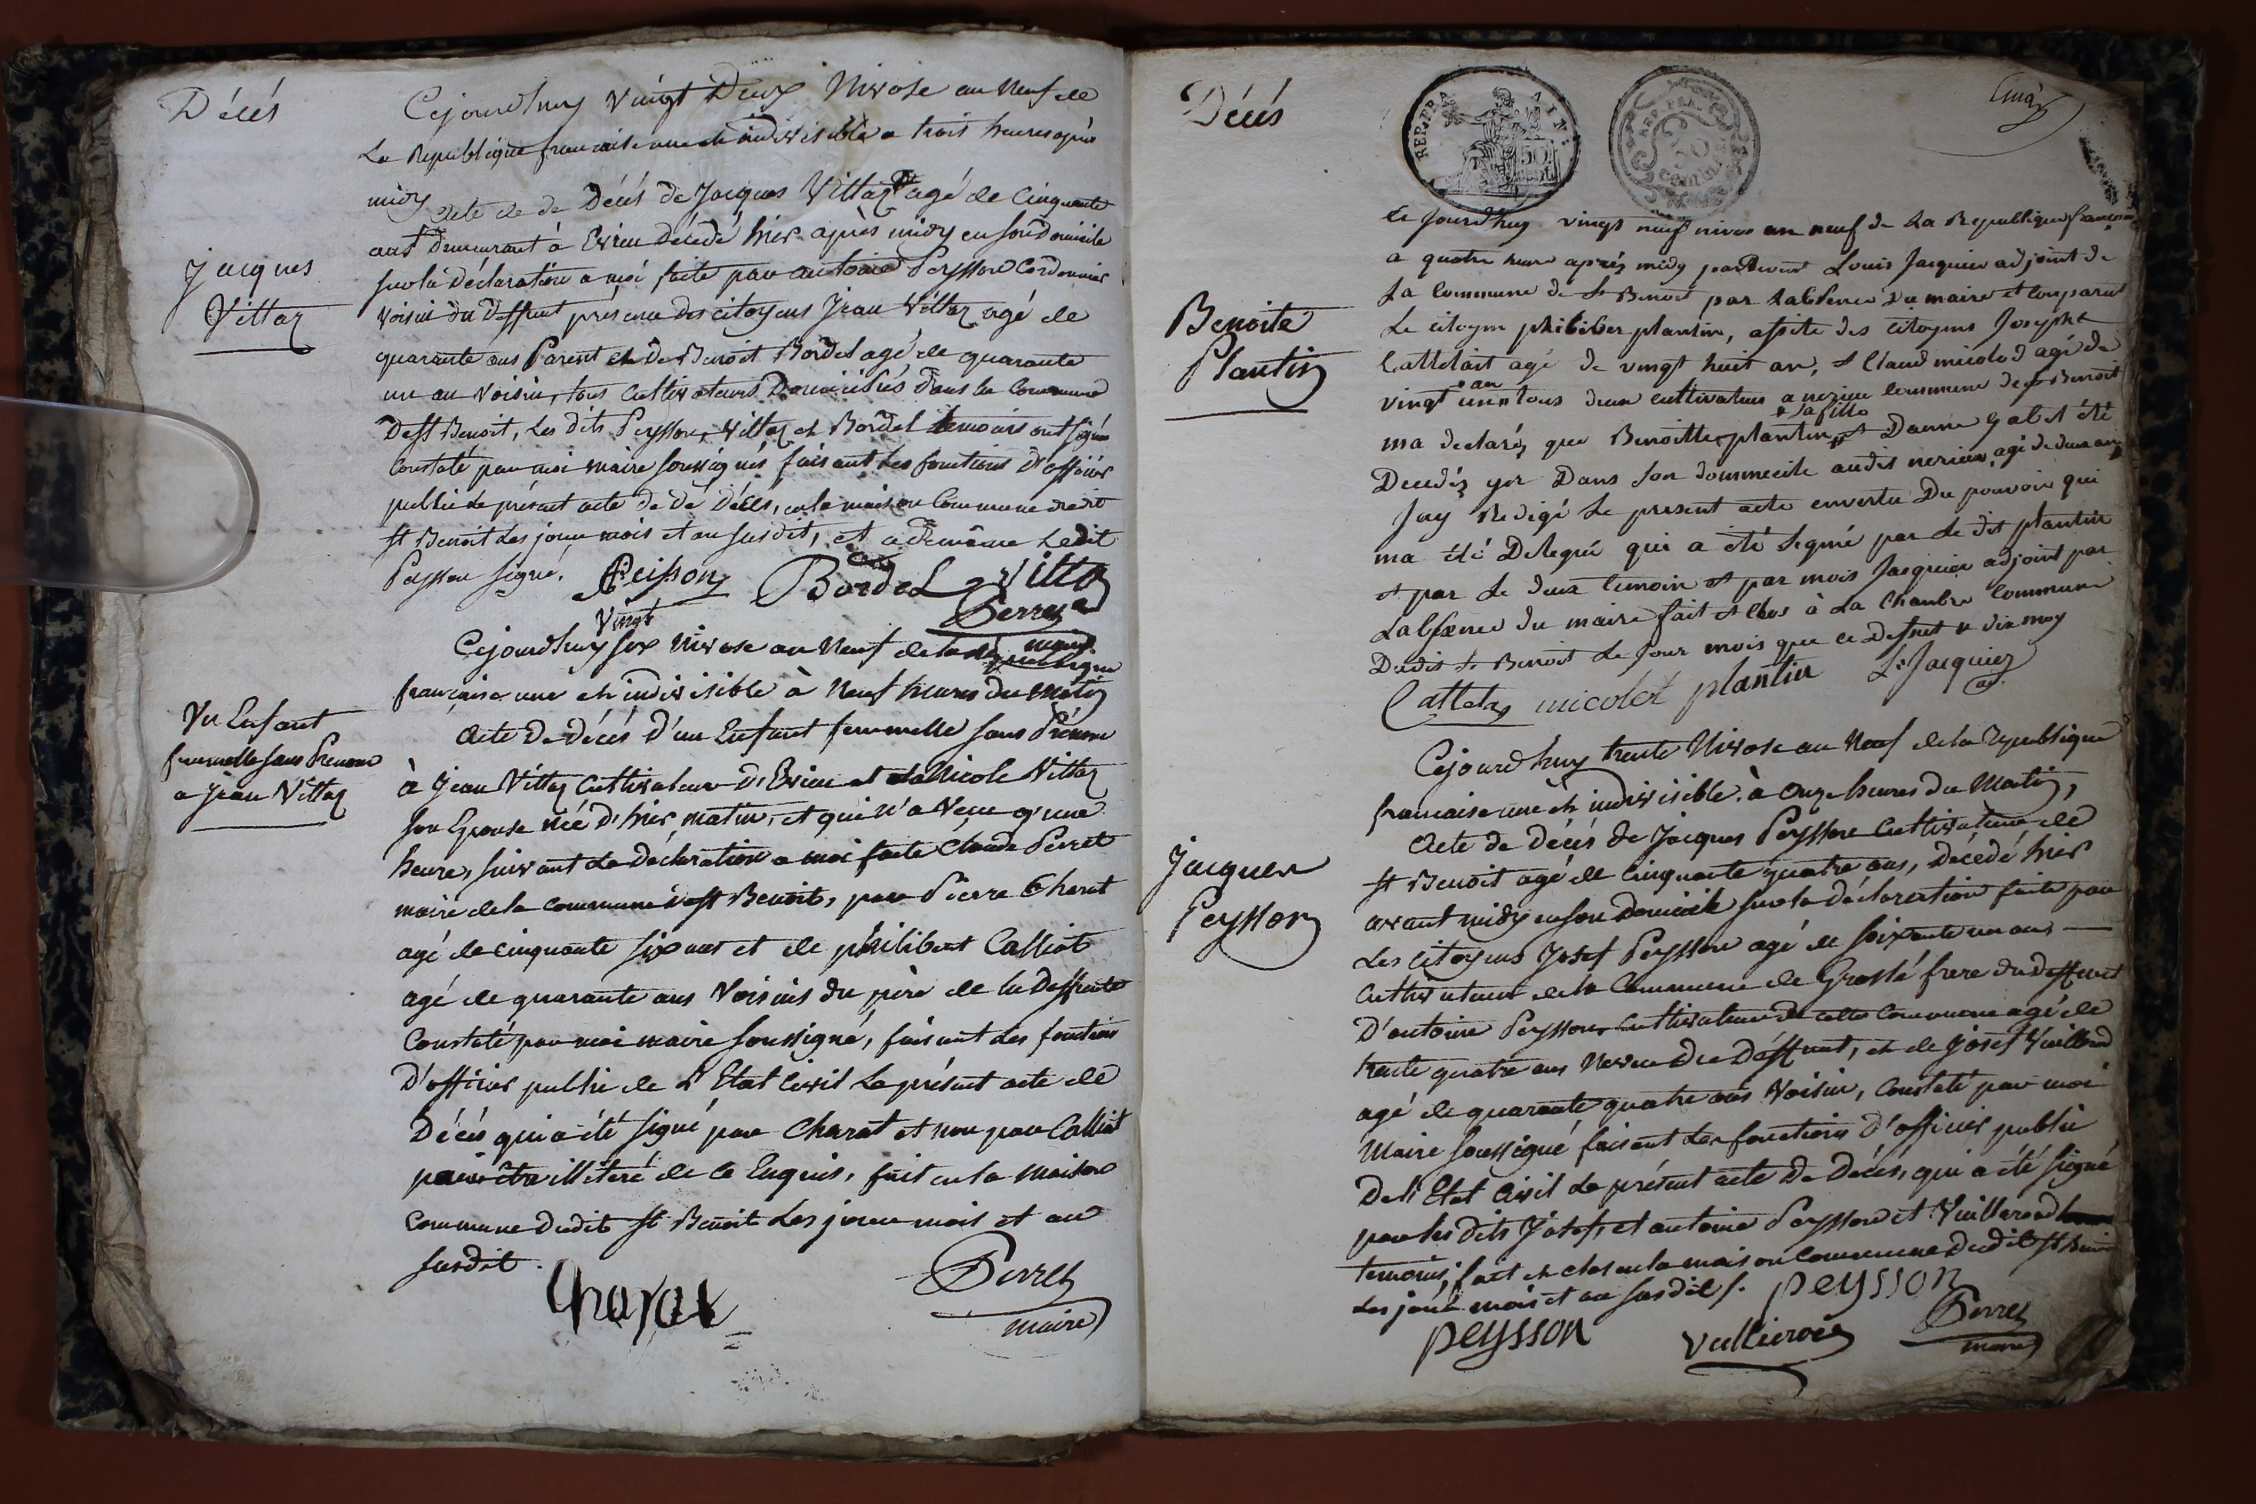 Décés
Cejourdhuy vingt Deux Nivose an Neuf de
La Republique francaise une et indivisible a trois heures après
midy
acte de de Décés de Jacques Vittaz agé de Cinquante
ans demeurant à Evieu Décédé hier après midy en son Domicile
sur la déclaration a moi faite par antoine Peysson Cordonnier
Jacques
Vittaz
voisin du Deffunt présence des citoyens Jean Vittaz agé de
quarante ans Parent et de Benoit Bordel agé de quarante
un an voisin, tous cultivateurs Domiciliés dans la Commune
De st Benoit, les dits Peysson, Vittaz et Bordel temoins ont signé
Constaté par moi maire soussigné faisant les fonctions D'officier
public le présent acte de de Décés, en la maison Commune dudit
st Benoit les jour, mois et an susdit, et a de même Ledit
Peysson signé.
Peisson Bordel Vitta
Perret
maire
vingt
Cejourdhuy six Nivose an Neuf de la republique
francaise une et indivisible à Neuf heures du matin
Un Enfant
fremelle sans Prenom
a Jean Vittaz
Acte De décés D'un Enfant femmelle sans Prénom
à Jean Vittaz Cultivateur D'Evieu et de Nicole Vittaz
son Epouse née D'hier matin, et qui n'a vecu q'une
heure, suivant la Déclaration a moi faite Claude Perret
maire de la commune de st Benoit, par Pierre Charat
agé de cinquante six ans et de philibert Calliot
agé de quarante ans voisins du père de la Deffunte
Constaté par moi maire soussigné, faisant les fonctions
D'officier public de L'Etat Civil Le présent acte de
Décés qui a été signé par Charat et non par Calliot
pour être illiteré de ce Enquis, fait en la maison
Commune dudit st Benoit Les jour mois et an
susdit.
Charat
Perret
maire
Décés
REP. FRA. AIN
50
REP. FRA.
50
CENTIM
Cinq
Ce Jourdhuy vingt neuf nivos an neuf de La Republique francaise
a quatre heure après midy pardevent Louis Jacquier adjoint de
La Commune de st Benoit par Labsence Du maire est Comparut
Benoite
Plantin
Le citoyen philiber plantin, assite des citoyens Josephe
Cattelait agé de vingt huit an, et Claud micolod agé de
vingt un an tous deux cultivateur a nezieu Commune de st Benoit
ma declaréz que Benoitte plantin sa fille et Danne Gabet été
Decedéz yer Dans son dommecile audit nezieu, agé de deux an,
Jay Redigé Le present acte envertu Du pouvoir qui
ma été Delegué qui a été signé par Le dit plantin
et par Le deux temoin et par mois Jacquier adjoint par
Labsence du maire fait et clos à La Chambre Commune
Dudit st Benoit Le Jour mois que et an
Cattela micolet plantin Ls Jacquier
adj.
Cejourdhuy trente Nivose an Neuf de la republique
francaise une et indivisible, à onze heures du Matin,
Acte de décés de Jacques Peysson Cultivateur de
Jacques
Peysson
st Benoit agé de Cinquante quatre ans, Décédé hier
avant midy en son Domicile sur la déclaration faite par
Les Citoyens Josef Peysson agé de soixante un ans,
Cultivateur de la Commune de Groslé frere du deffunt
D'antoine Peysson Cultivateur de cette Commune agé de
trente quatre ans Neveu du Déffunt, et de Josef Vuillerod
agé de quarante quatre ans voisin, Constaté par moi
Maire soussigné faisant les fonctions D'officier public
De L'Etat Civil Le présent acte de Décés, qui a été signé
par les dits Josef, et antoine Peysson et Vuillerod
temoins, fait et clos en la maison Commune dudit st Benoit
Les jour mois et an susdits.
peysson
peysson vullierod Perret
maire